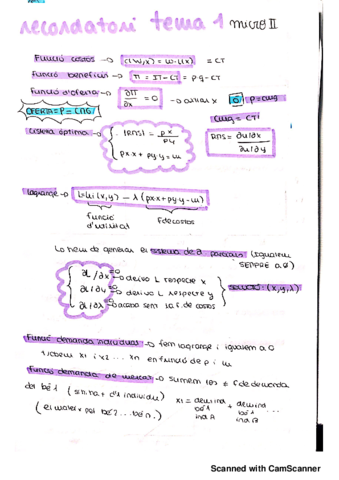 recordatori tema 1 micro II
Funció costos → c(w,x) = w·L(x) = CT
Funció beneficis → π = IT - CT = p·q - CT
Funció d'oferta → ∂π/∂x = 0 → aïllar x ó p = cmg
OFERTA = P = CMG
Cmg = CT'
Cistera òptima → |RMS| = px/py
px·x + py·y = m
RMS = ∂u/∂x / ∂u/∂y
Lagrange → L = u(x,y) - λ(px·x + py·y - m)
funció d'utilitat
F de costos
Lo hem de generar el sistema de 3 (igualem SEMPRE a 0)
∂L/∂x = 0 → derivo L respecte x
∂L/∂y = 0 → derivo L respecte y
∂L/∂λ = 0 → acaba sent la f. de costos
SOLUCIÓ: (x,y,λ)
Funció demanda individual → fem lagrange i igualem a 0
i trobem x1 i x2 ... xn en funció de p i m
Funció demanda de mercat → sumem les ≠ f de demanda
del bé 1 ( d'1 individu)
x1 = demind bé 1 ind A + demind bé 1 ind B ...
(el mateix pel bé 2 ... bé n.)
Scanned with CamScanner